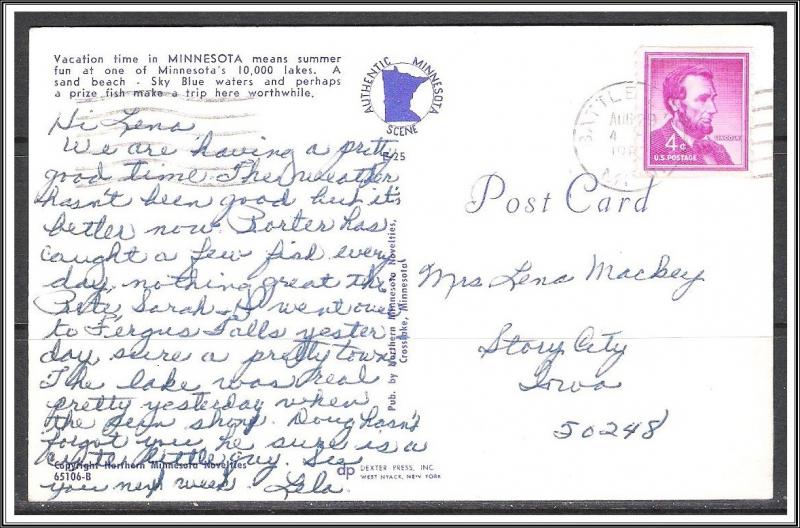 Vacation time in MINNESOTA means summer
fun at one of Minnesota's 10,000 lakes. A
sand beach - Sky Blue waters and perhaps
a prize fish make a trip here worthwhile.
AUTHENTIC MINNESOTA
SCENE
E-25
Hi Lena
We are having a pretty
good time. The weather
hasn't been good but it's
better now. Porter has
caught a few fish every
day, nothing great tho
Pete, Sarah & I went over
to Fergus Falls yester
day, sure a pretty town
The lake was real
pretty yesterday when
the sun shone. Doug hasn't
forgot you, he sure is a
cute little guy. See
you next week. Lela
Copyright Northern Minnesota Novelties
65106-B
Pub. by Northern Minnesota Novelties,
Crosslake, Minnesota
dp DEXTER PRESS, INC.
WEST NYACK, NEW YORK
BATTLE
AUG 29
4
LINCOLN
4¢
U.S. POSTAGE
Post Card
Mrs Lena Mackey
Story City
Iowa
50248